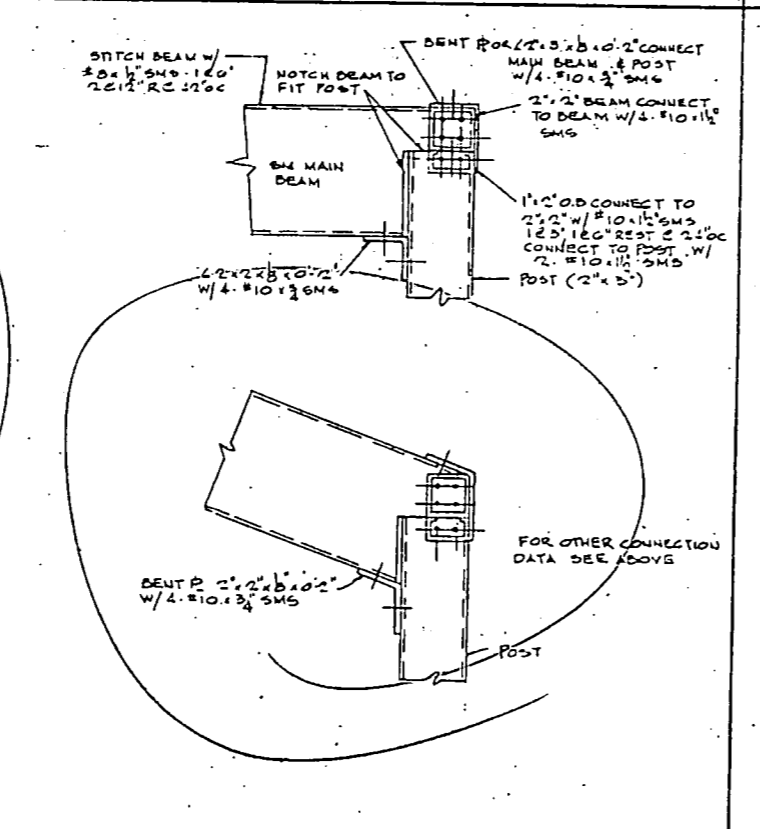 STITCH BEAM W/
#8 x ½" SMS - 1@6"
2@12" R@ 12"OC
NOTCH BEAM TO
FIT POST
BENT ℙ OR ∠ 2" x 3" x ⅛ x 0'-2" CONNECT
MAIN BEAM & POST
W/ 4 - #10 x ¾" SMS
2" x 2" BEAM CONNECT
TO BEAM W/ 4 - #10 x 1½"
SMS
MAIN
BEAM
1" x 2" O.B CONNECT TO
2" x 2" W/ #10 x 1½" SMS
REST @ 24"OC
CONNECT TO POST W/
2 - #10 x 1½" SMS
POST (2" x 3")
∠ 2 x 2 x ⅛ x 0'-2"
W/ 4 - #10 x ¾ SMS
FOR OTHER CONNECTION
DATA SEE ABOVE
BENT ℙ 2" x 2" x ⅛" x 0'-2"
W/ 4 - #10 x ¾" SMS
POST